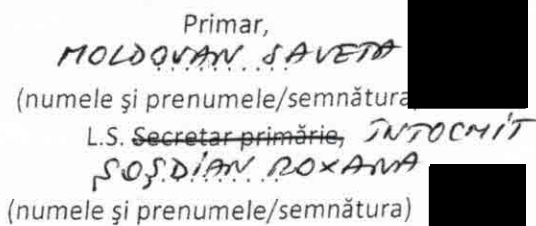 Primar,
MOLDOVAN SAVETA
(numele și prenumele/semnătura
L.S. Secretar primărie, INTOCMIT
ȘOȘDIAN ROXANA
(numele și prenumele/semnătura)